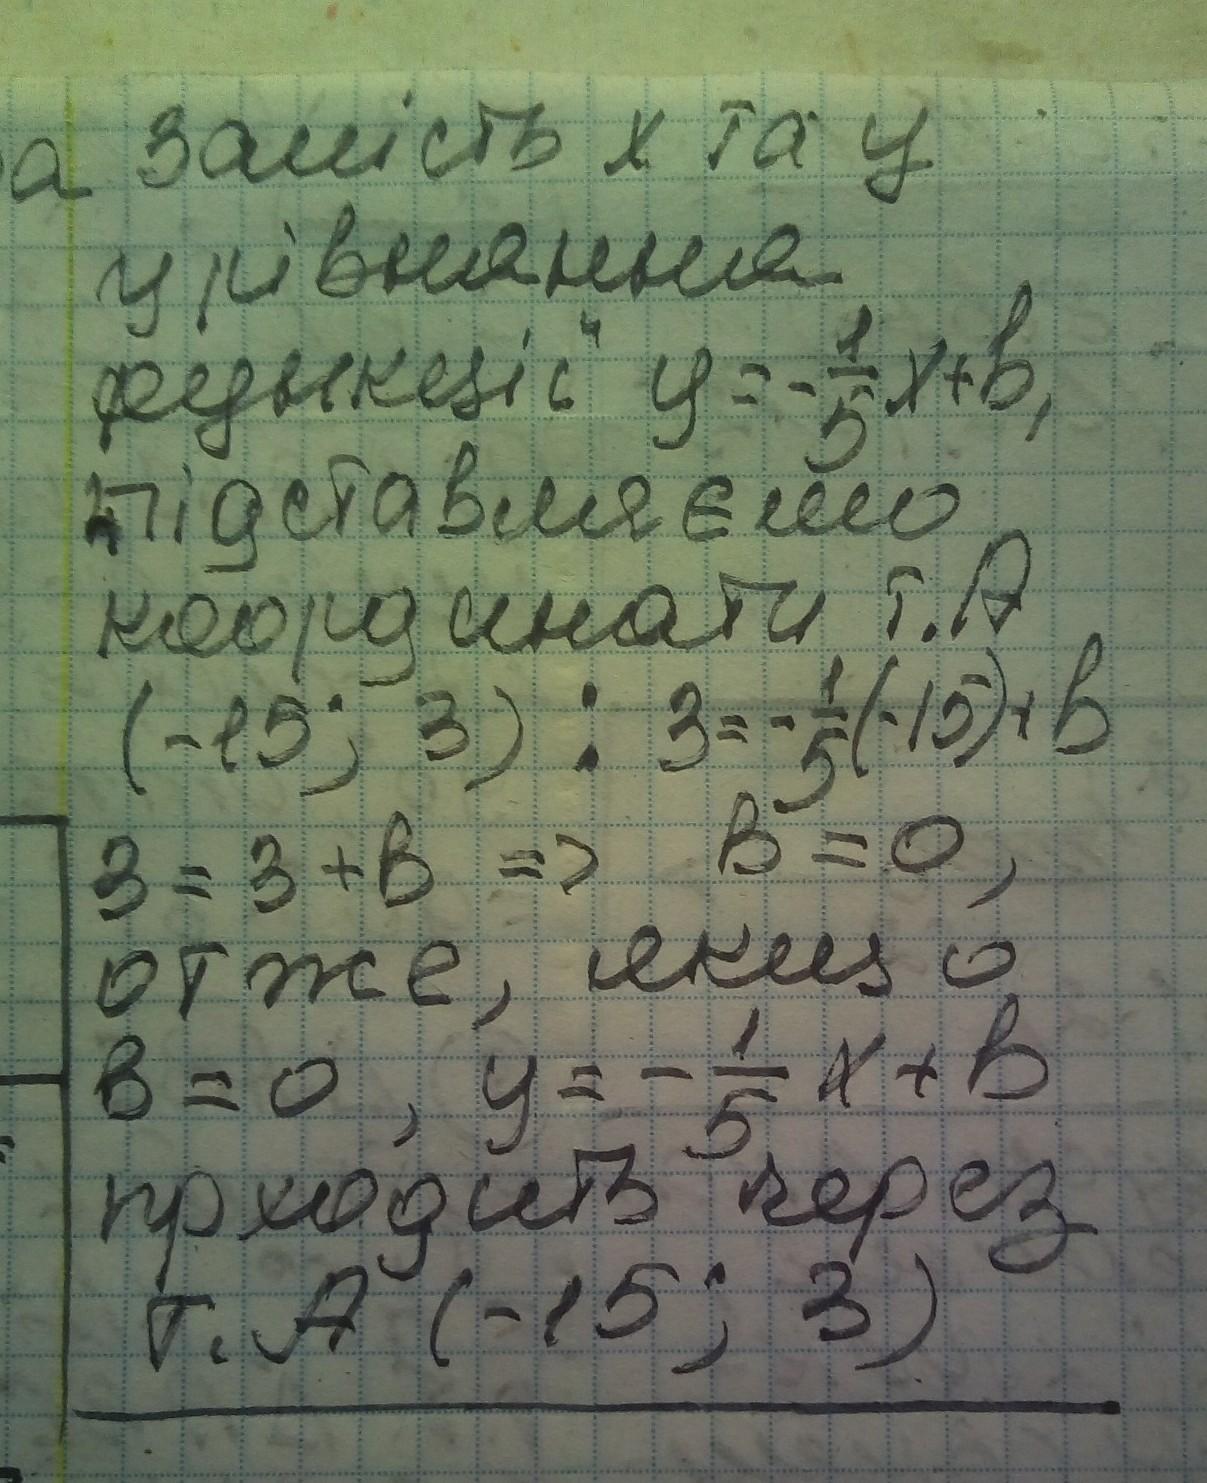 замість х та у
у рівняння
функції y = -1/5 x + b,
підставляємо
координати т. А
(-15; 3) : 3 = -1/5 (-15) + b
3 = 3 + b => b = 0,
отже, якщо
b = 0, y = -1/5 x + b
проходить через
т. А (-15; 3)